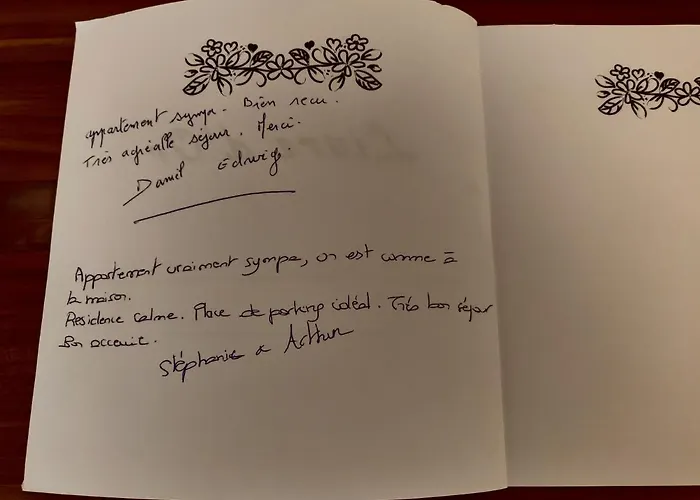 appartement sympa. Bien recu.
Très agréable séjour. Merci.
Daniel Edwig.
Appartement vraiment sympa, on est comme à
la maison.
Résidence calme. Place de parking idéal. Très bon séjour
Bon accueil.
Stéphanie & Arthur